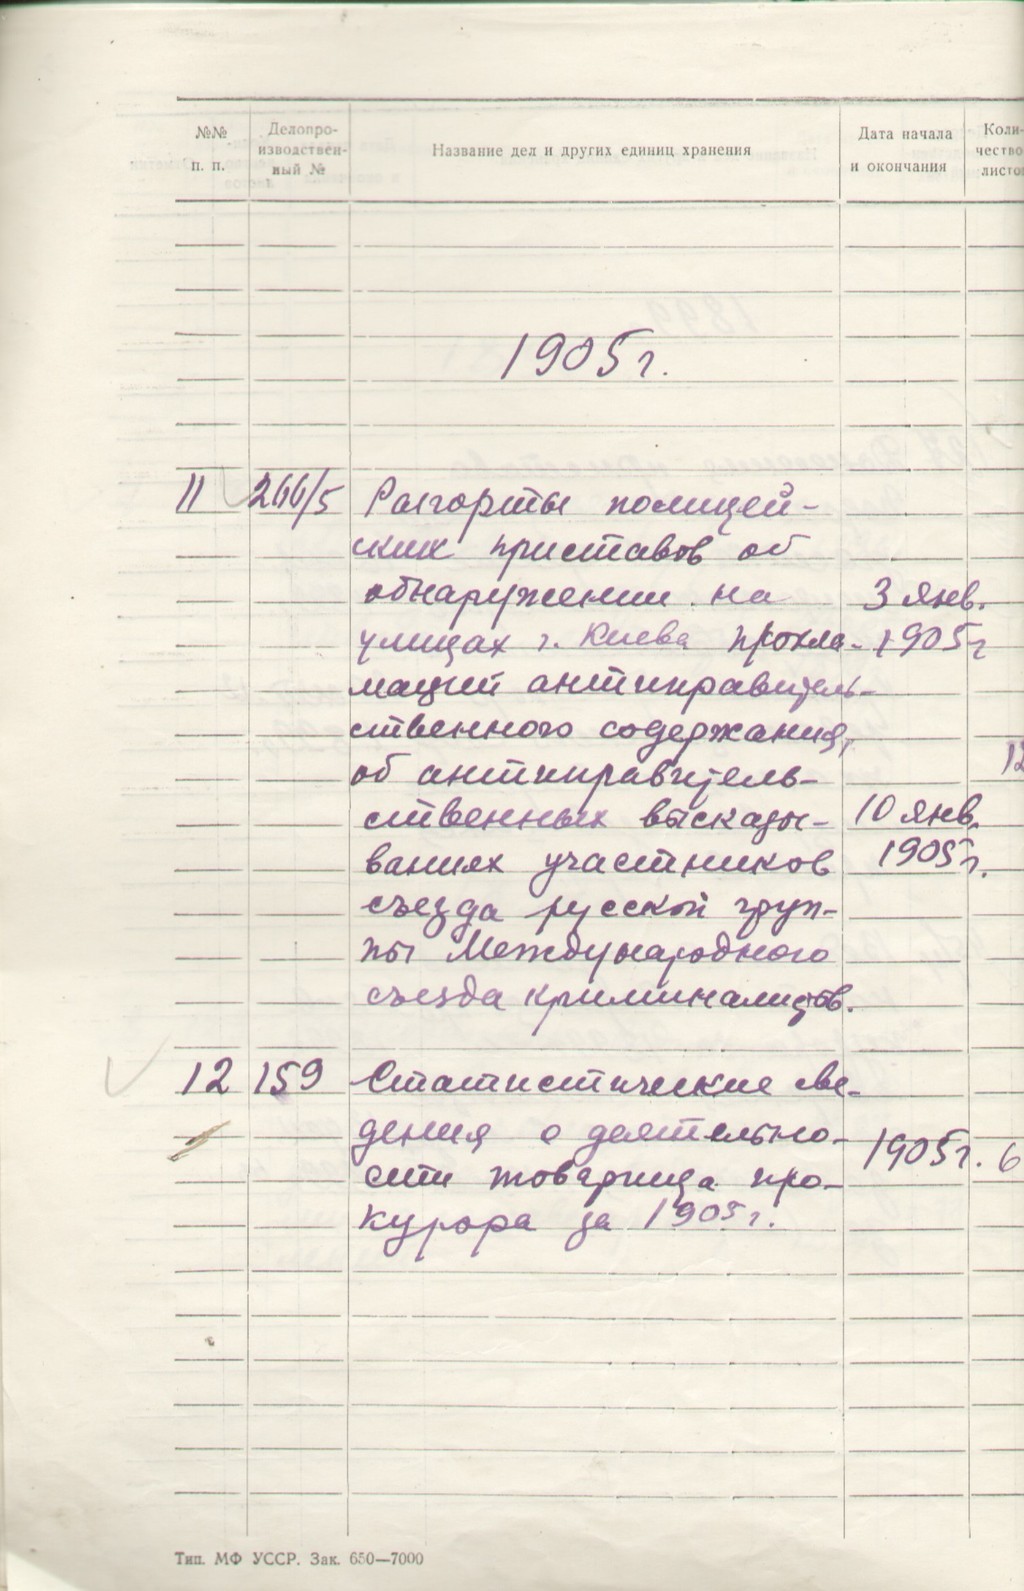 №№ п. п.
Делопро-
изводствен-
ный №
Название дел и других единиц хранения
Дата начала
и окончания
Коли-
чество
листо
1905 г.
11 266/5 Рапорты полицей-
ских приставов об
обнаружении на 3 янв.
улицах г. Киева прокла- 1905 г
маций антиправитель-
ственного содержания,
об антиправитель- 12
ственных высказы- 10 янв.
ваниях участников 1905 г.
съезда русской груп-
пы Международного
съезда криминалистов.
12 159 Статистические све-
дения о деятельно-
сти товарища про- 1905 г. 6
курора за 1905 г.
Тип. МФ УССР. Зак. 650—7000